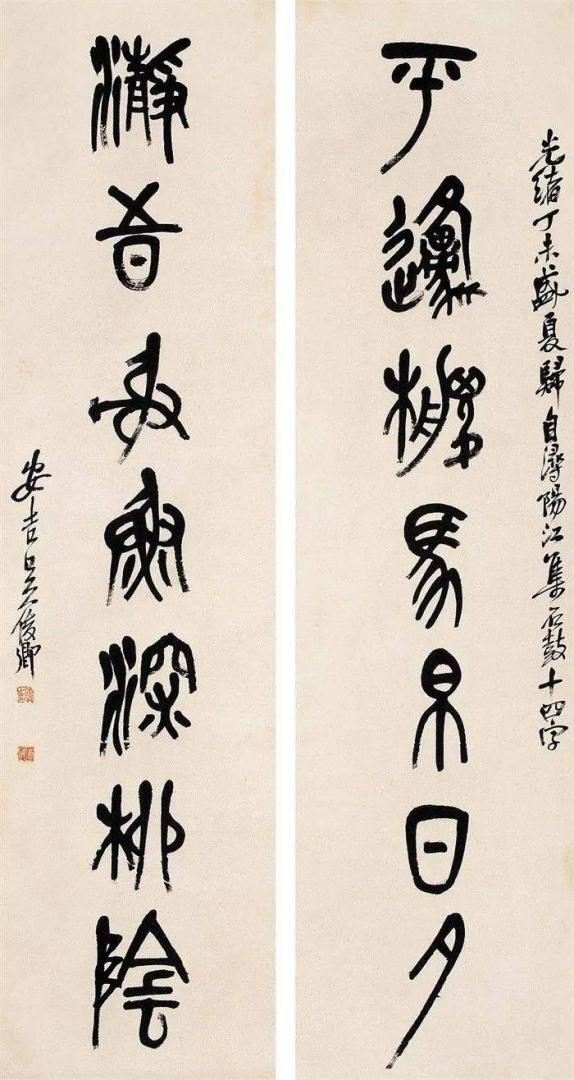 光緒丁未盛夏歸自潯陽江集石鼓十四字
平邍櫟馬日夕
瀞吾深柳陰
安吉吳俊卿